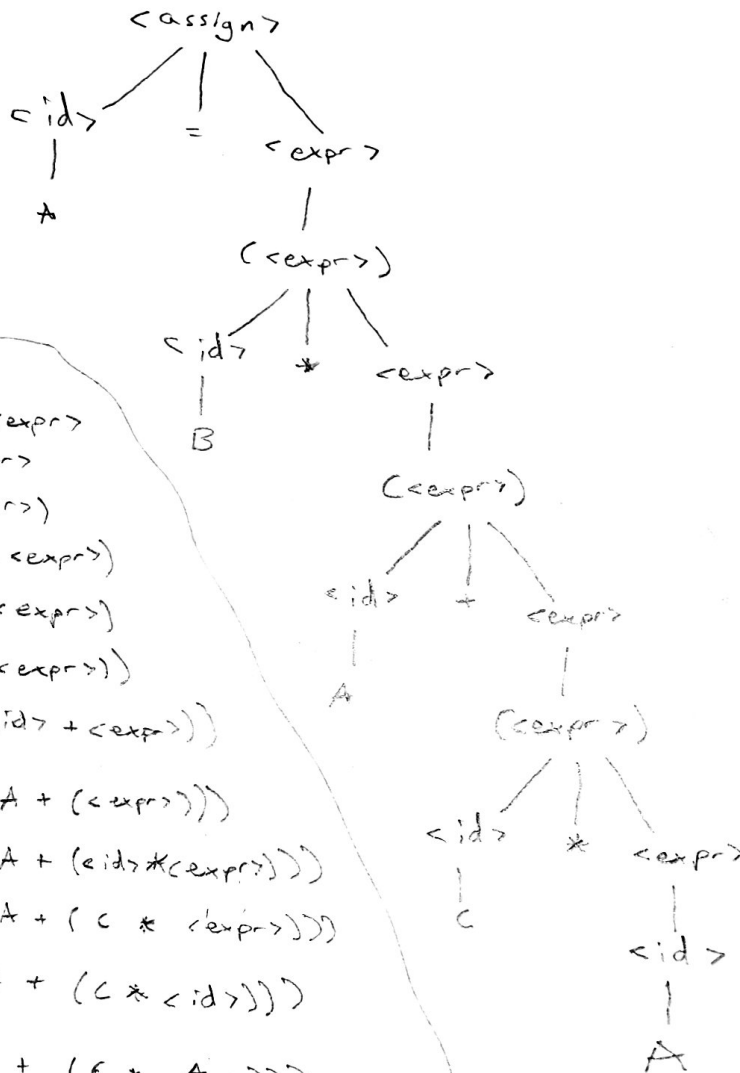 <assign>
<id> = <expr>
A
(<expr>)
<id> * <expr>
B
(<expr>)
<id> + <expr>
A
(<expr>)
<id> * <expr>
C
<id>
A
expr>
r>
r>)
<expr>)
<expr>)
<expr>))
id> + <expr>))
A + (<expr>)))
A + (<id>*<expr>)))
A + ( C * <expr>)))
+ (C * <id>)))
+ ( C * A )))